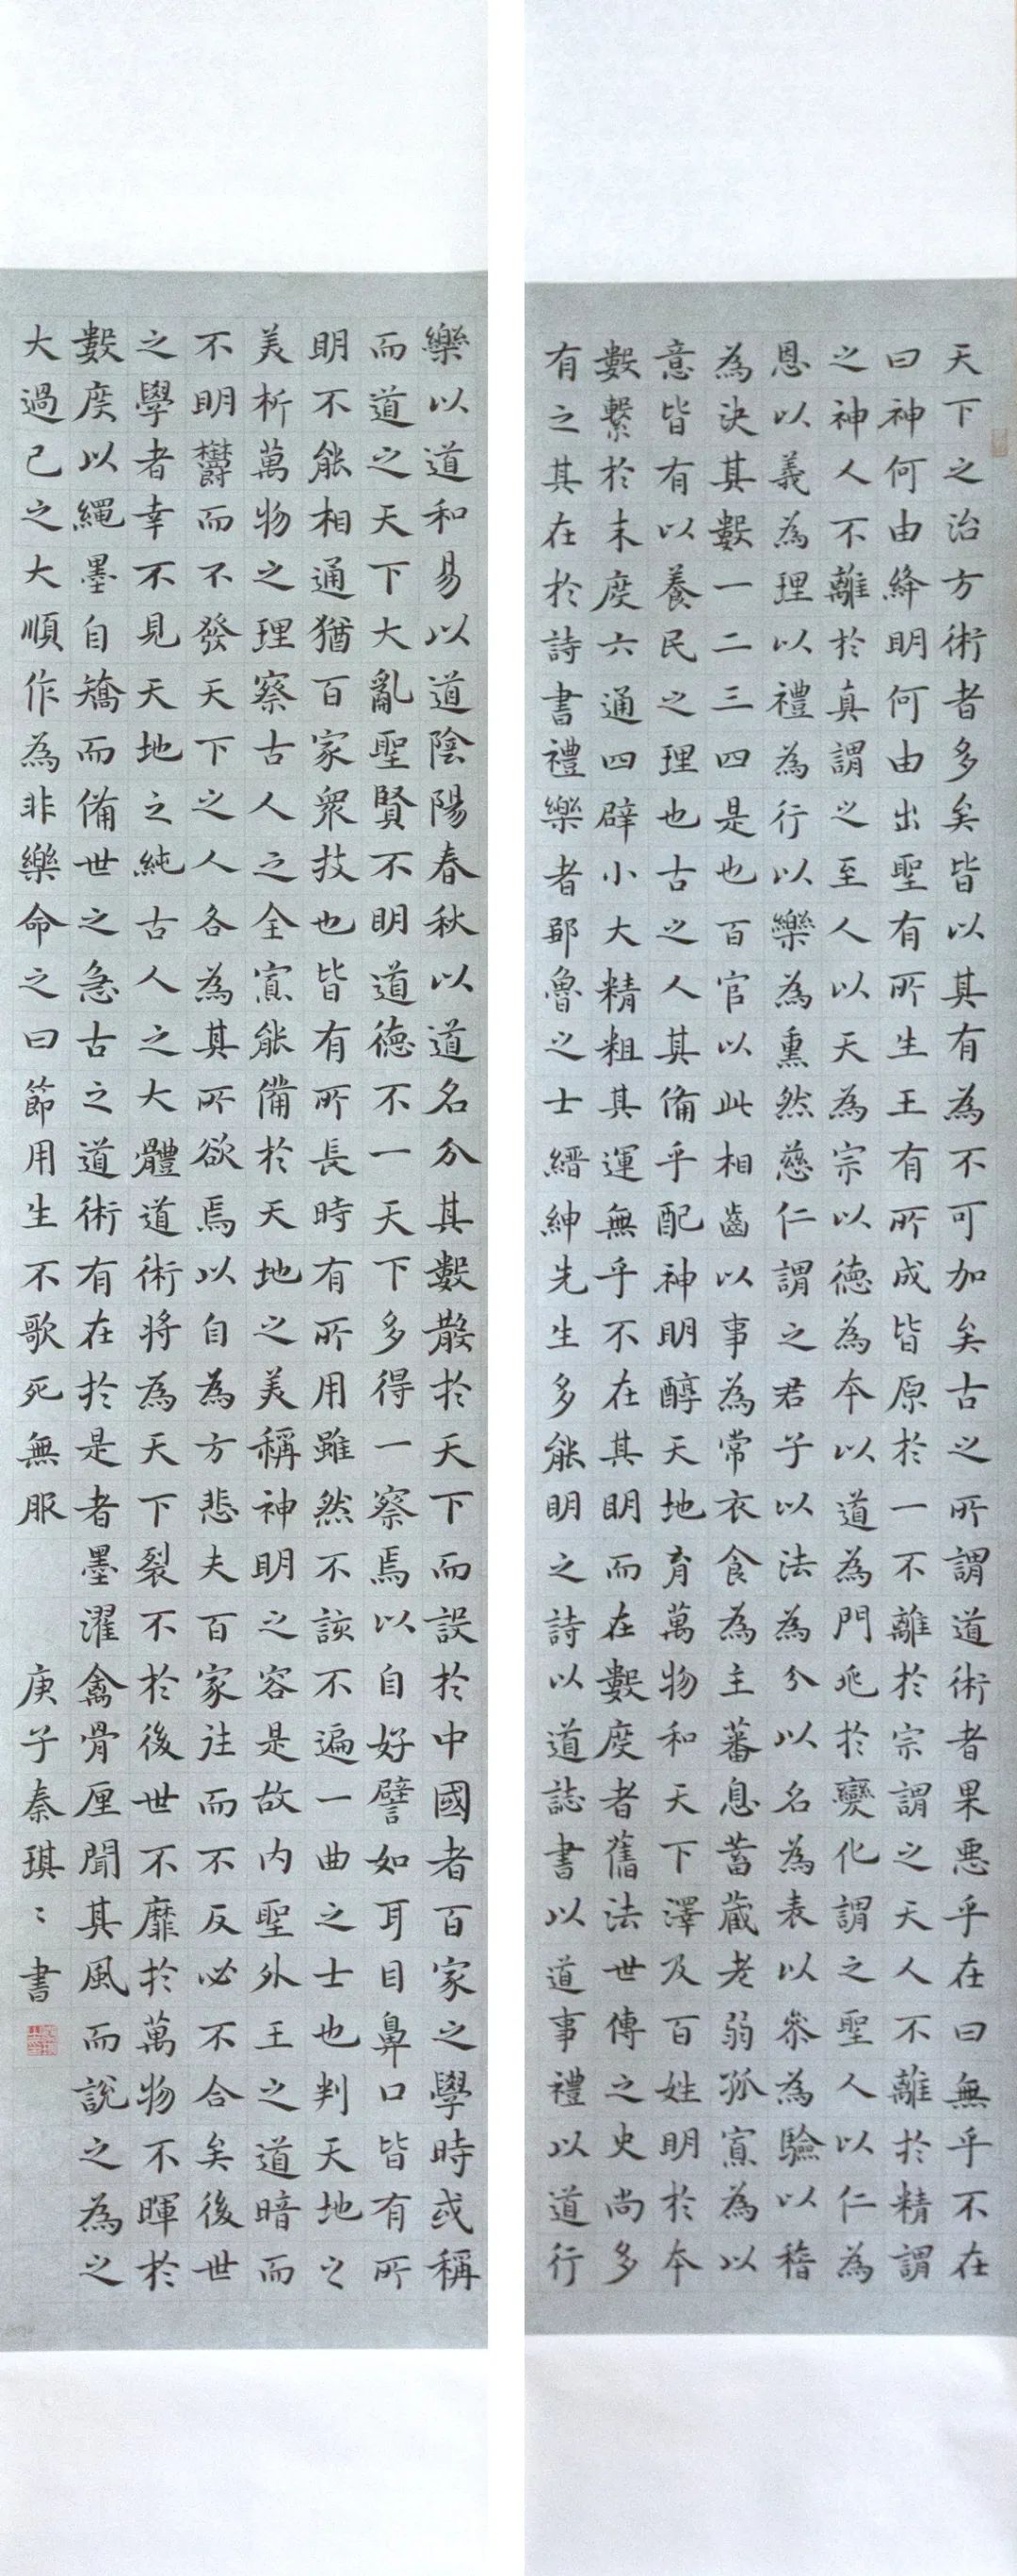 天下之治方術者多矣皆以其有為不可加矣古之所謂道術者果悪乎在曰無乎不在
曰神何由絳明何由出聖有所生王有所成皆原於一不離於宗謂之天人不離於精謂
之神人不離於真謂之至人以天為宗以德為本以道為門兆於變化謂之聖人以仁為
恩以義為理以禮為行以樂為熏然慈仁謂之君子以法為分以名為表以參為驗以稽
為決其數一二三四是也百官以此相齒以事為常衣食為主蕃息蓄藏老弱孤寡為以
意皆有以養民之理也古之人其備乎配神明醇天地育萬物和天下澤及百姓明於本
數繫於末度六通四辟小大精粗其運無乎不在其明而在數度者舊法世傳之史尚多
有之其在於詩書禮樂者鄒魯之士縉紳先生多能明之詩以道誌書以道事禮以道行
樂以道和易以道陰陽春秋以道名分其數散於天下而設於中國者百家之學時或稱
而道之天下大亂聖賢不明道德不一天下多得一察焉以自好譬如耳目鼻口皆有所
明不能相通猶百家眾技也皆有所長時有所用雖然不該不遍一曲之士也判天地之
美析萬物之理察古人之全寡能備於天地之美稱神明之容是故内聖外王之道暗而
不明欝而不發天下之人各為其所欲焉以自為方悲夫百家往而不反必不合矣後世
之學者幸不見天地之純古人之大體道術將為天下裂不於後世不靡於萬物不暉於
數度以繩墨自矯而備世之急古之道術有在於是者墨濯禽骨厘聞其風而說之為之
大過己之大順作為非樂命之曰節用生不歌死無服 庚子秦琪〻書